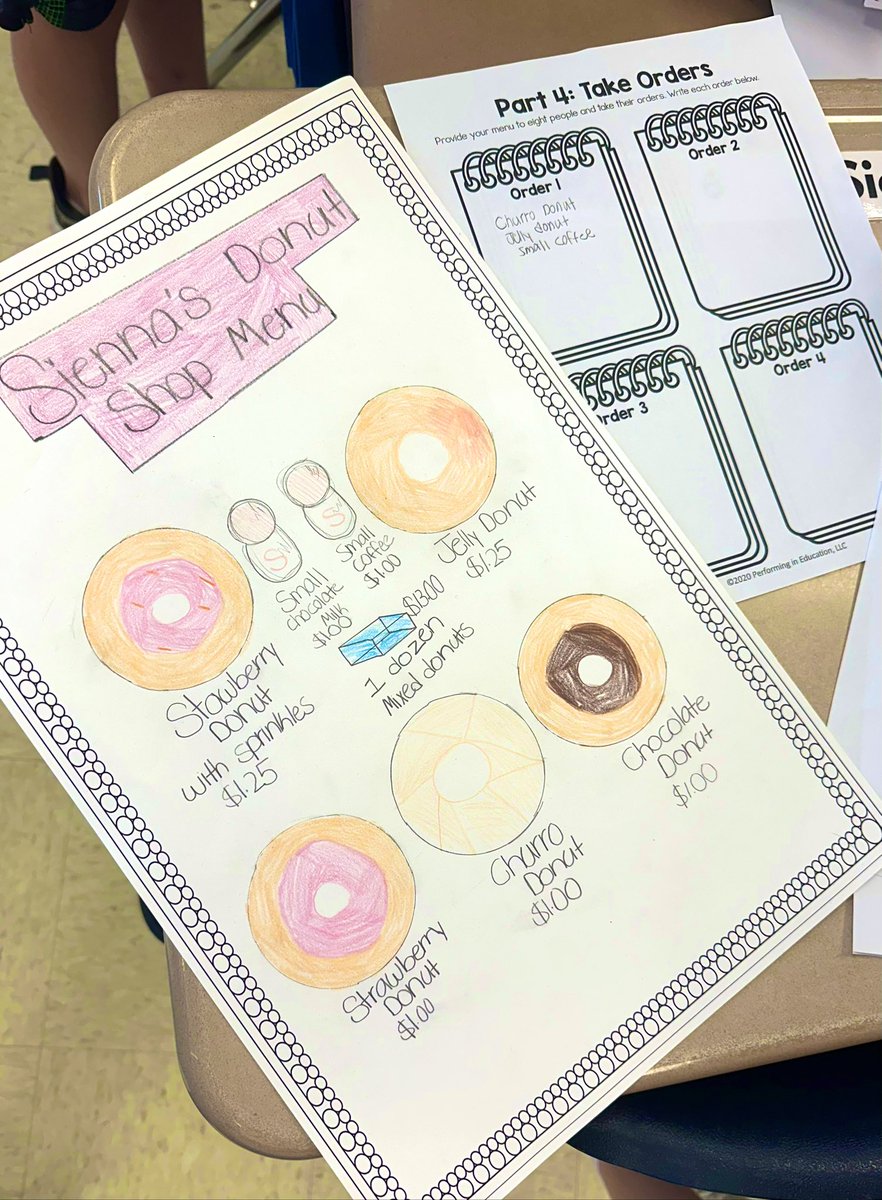 Sienna's Donut
Shop Menu
Small
chocolate
milk
$1.00
Small
coffee
$1.00
Jelly Donut
$1.25
Stawberry
Donut
with sprinkles
$1.25
$13.00
1 dozen
Mixed donuts
Chocolate
Donut
$1.00
Churro
Donut
$1.00
Strawberry
Donut
$1.00
Part 4: Take Orders
Provide your menu to eight people and take their orders. Write each order below.
Order 1
Churro Donut
Jelly donut
small coffee
Order 2
Order 3
Order 4
©2020 Performing in Education, LLC